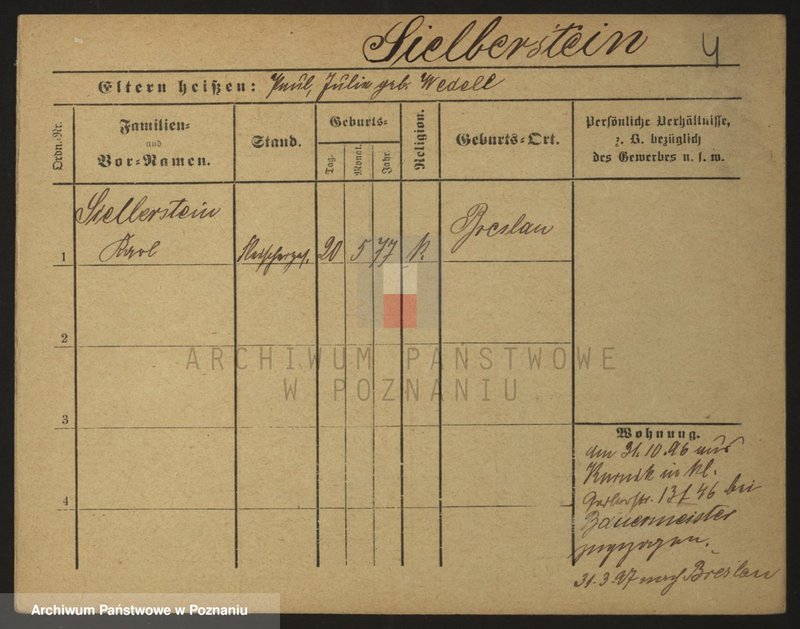 Sielberstein 4
Eltern heißen: Paul, Julie geb. Wedell
Ordn.-Nr.
Familien-
und
Vor-Namen.
Stand.
Geburts-
Tag.
Monat.
Jahr.
Religion.
Geburts-Ort.
Persönliche Verhältnisse,
z. B. bezüglich
des Gewerbes u. s. w.
Sielberstein
1 Karl Fleischerges. 20 5 77 k. Breslau
2
3
4
Wohnung.
am 31.10.96 aus
Kurnik in kl.
Gerberstr. 13 f 46 bei
Bauermeister
zugezogen.
31.3.97 nach Breslau
ARCHIWUM PAŃSTWOWE
W POZNANIU
Archiwum Państwowe w Poznaniu